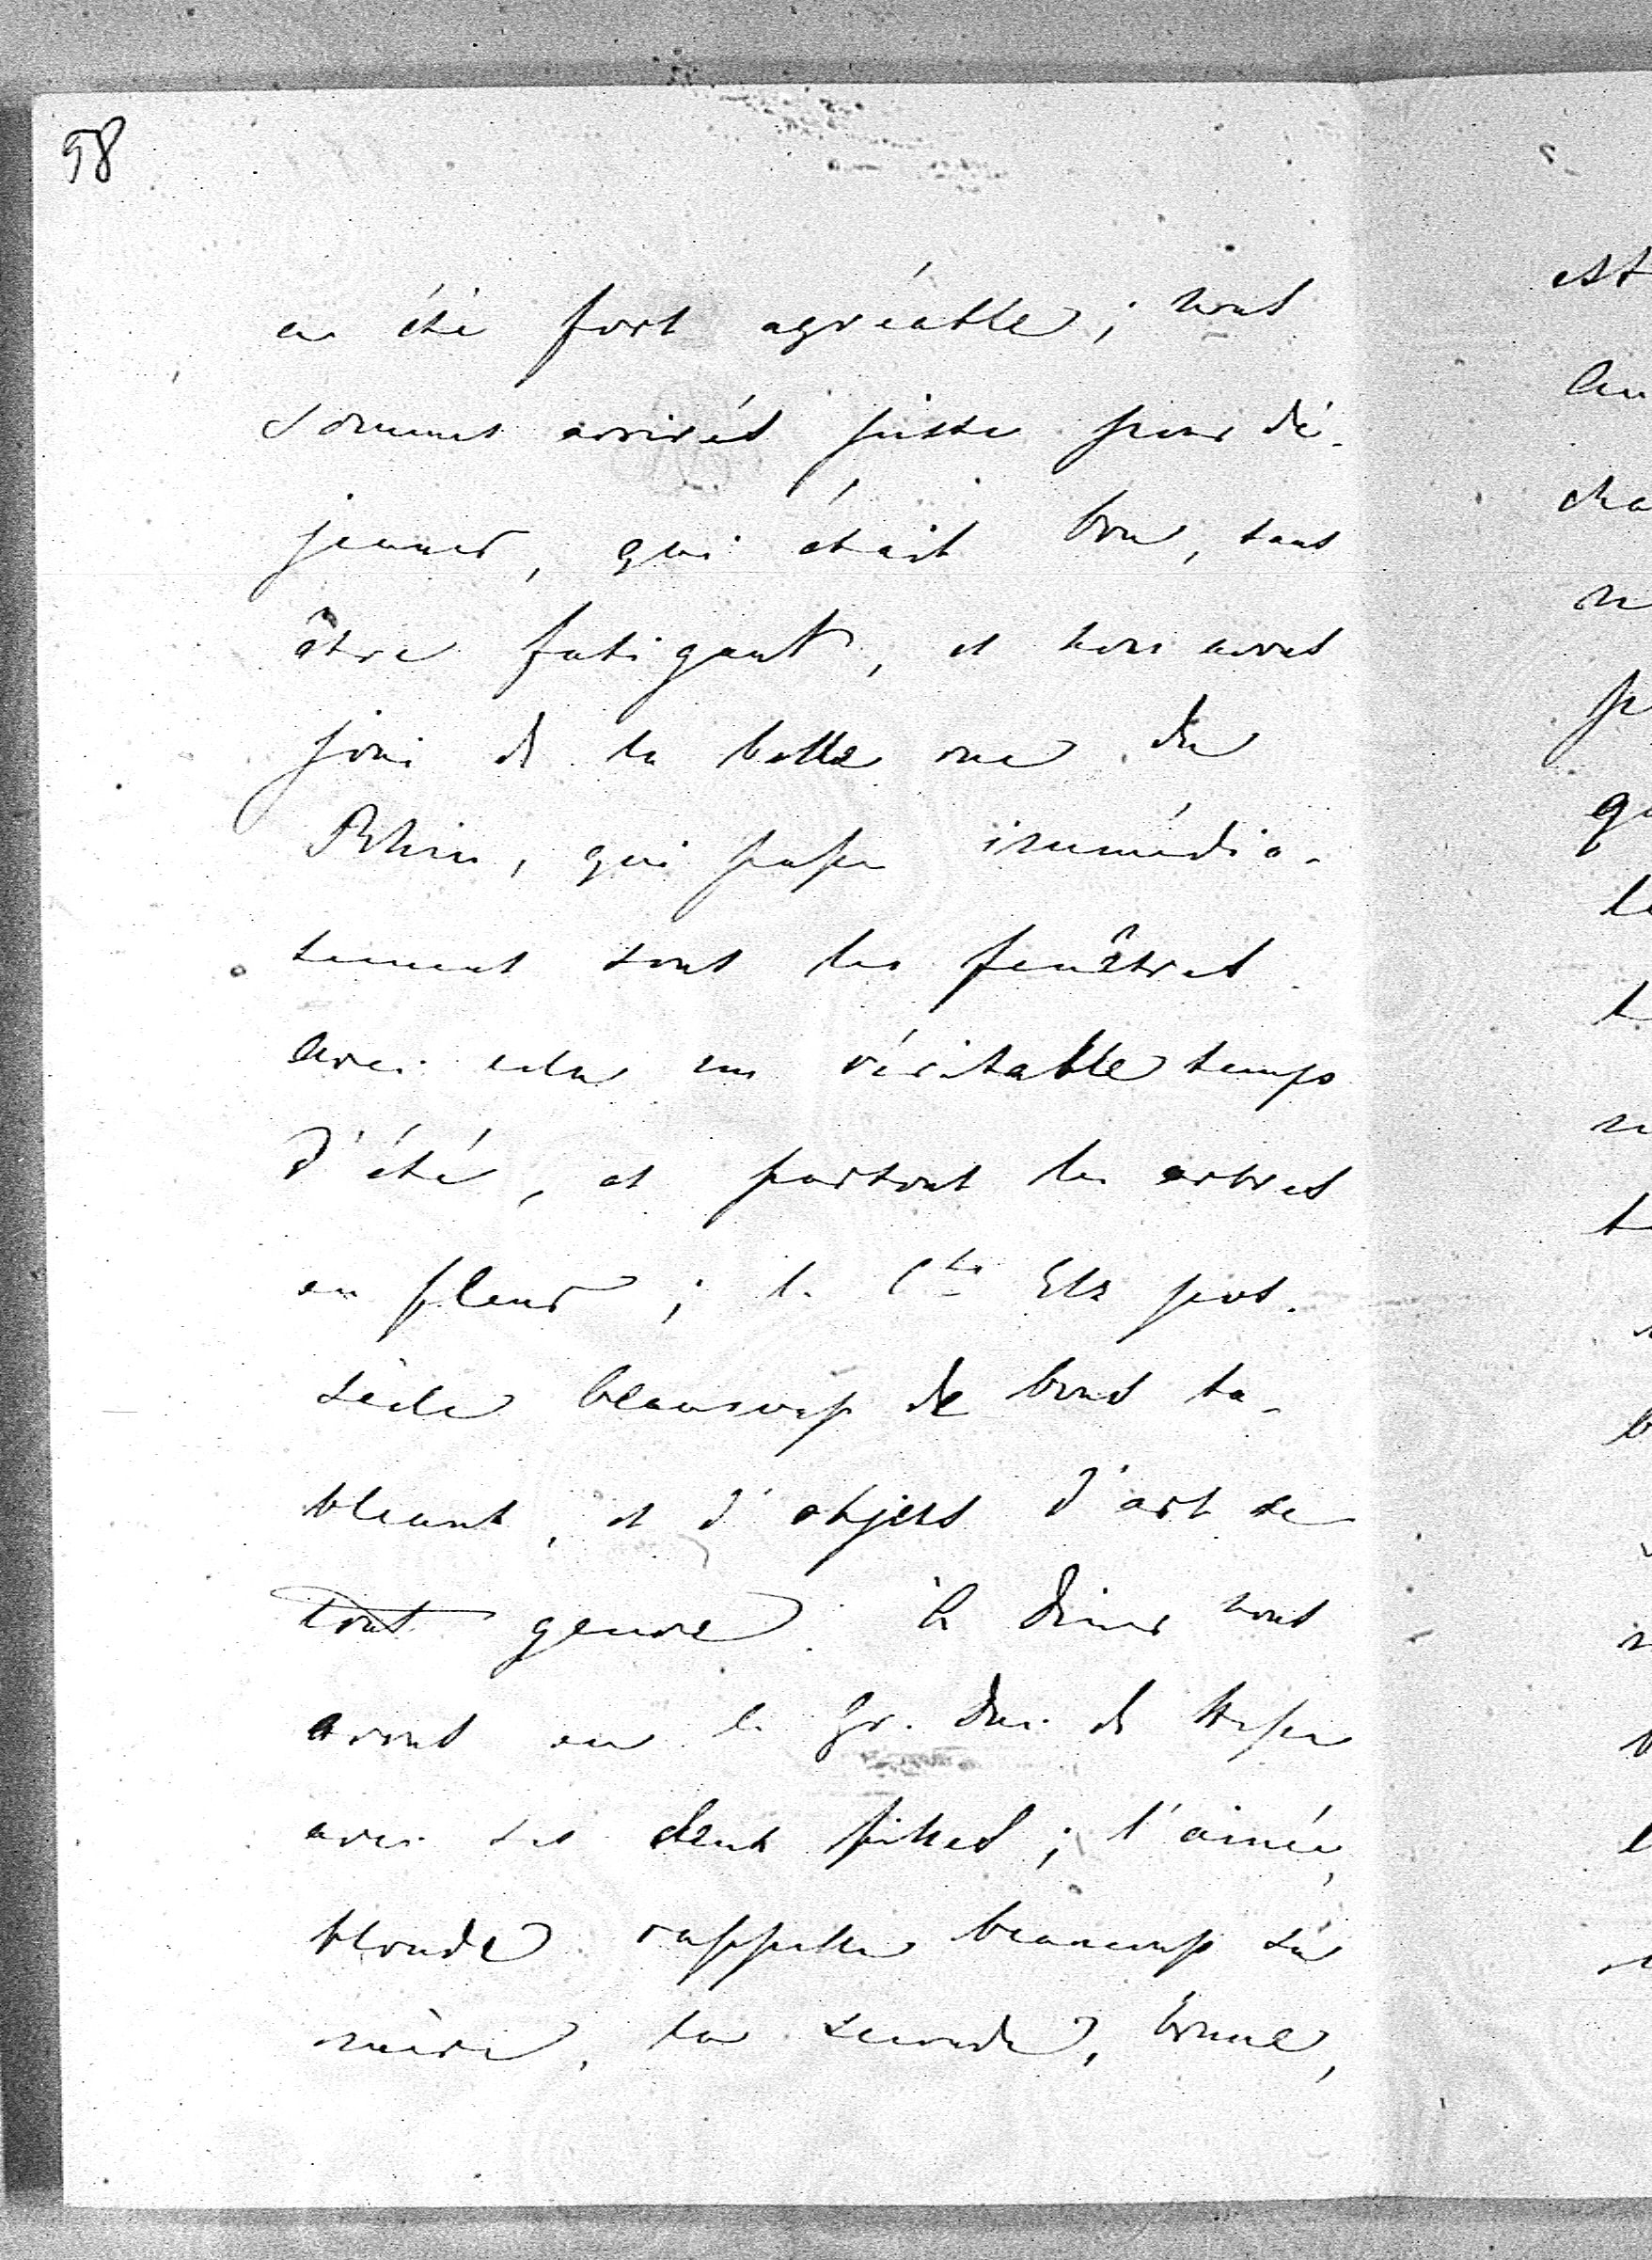 58
a été fort agréable ; nous
sommes arrivés juste pour dé-
jeuner, qui était bon, sans
être fatigant, et nous avons
joui de la belle vue du
Rhin, qui passe immédia-
tement sous les fenêtres.
avec cela un véritable temps
d'été, et partout les arbres
en fleur ; le Cte Eltz pos-
sède beaucoup de bons ta-
bleaux, et d'objets d'art de
tout genre. à dîner nous
avons eu le Gr. Duc de Hesse
avec ses deux filles ; l'ainée,
blonde rappelle beaucoup sa
mère, la seconde, brune,
est